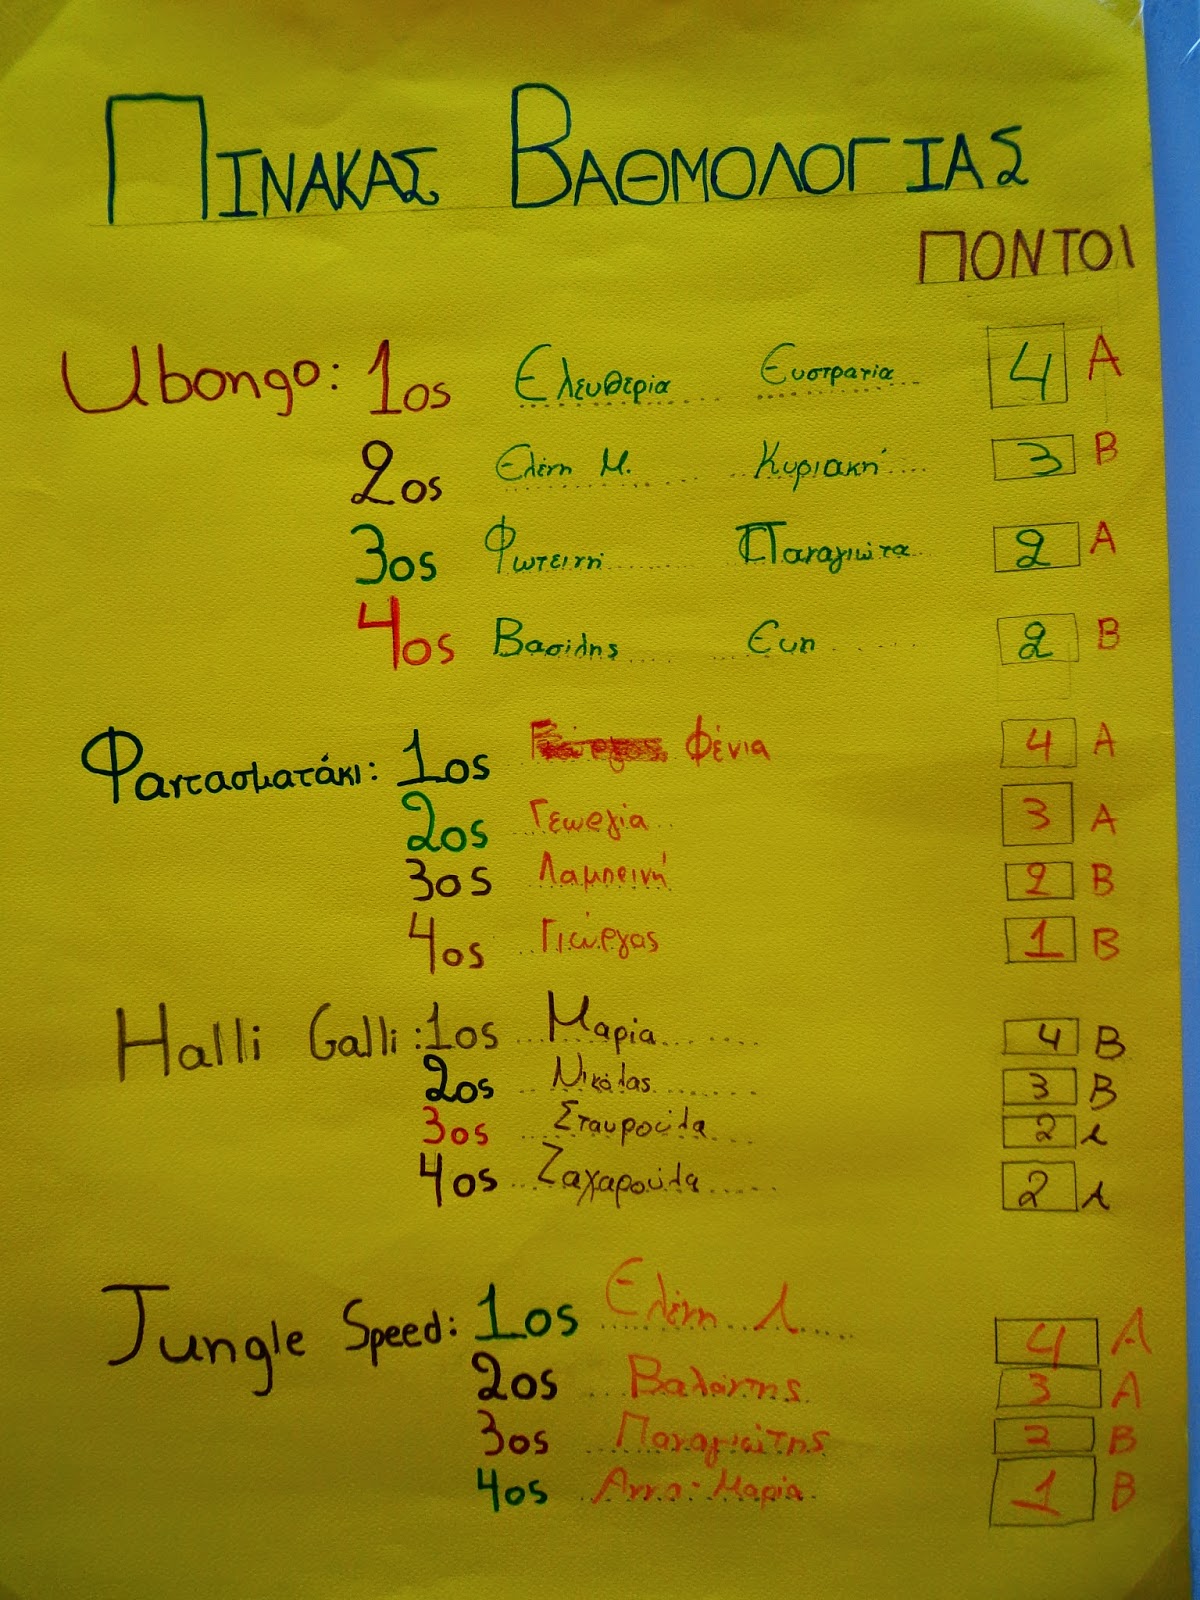 ΠΙΝΑΚΑΣ ΒΑΘΜΟΛΟΓΙΑΣ
ΠΟΝΤΟΙ
Ubongo: 1ος Ελευθερία Ευστρατία 4 Α
2ος Ελένη Μ. Κυριακή 3 Β
3ος Φωτεινή Παναγιώτα 2 Α
4ος Βασίλης Ευη 2 Β
Φαντασματάκι: 1ος Φένια 4 Α
2ος Γεωργία 3 Α
3ος Λαμπεινή 2 Β
4ος Γιώργος 1 Β
Halli Galli: 1ος Μαρία 4 Β
2ος Νικόλας 3 Β
3ος Σταυρούλα 2 Α
4ος Ζαχαρούλα 2 Α
Jungle Speed: 1ος Ελένη Λ 4 Α
2ος Βαλάντης 3 Α
3ος Παναγιώτης 2 Β
4ος Αννα-Μαρία 1 Β